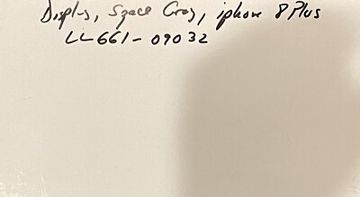 Display, Space Gray, iphone 8 Plus
LL661-09032